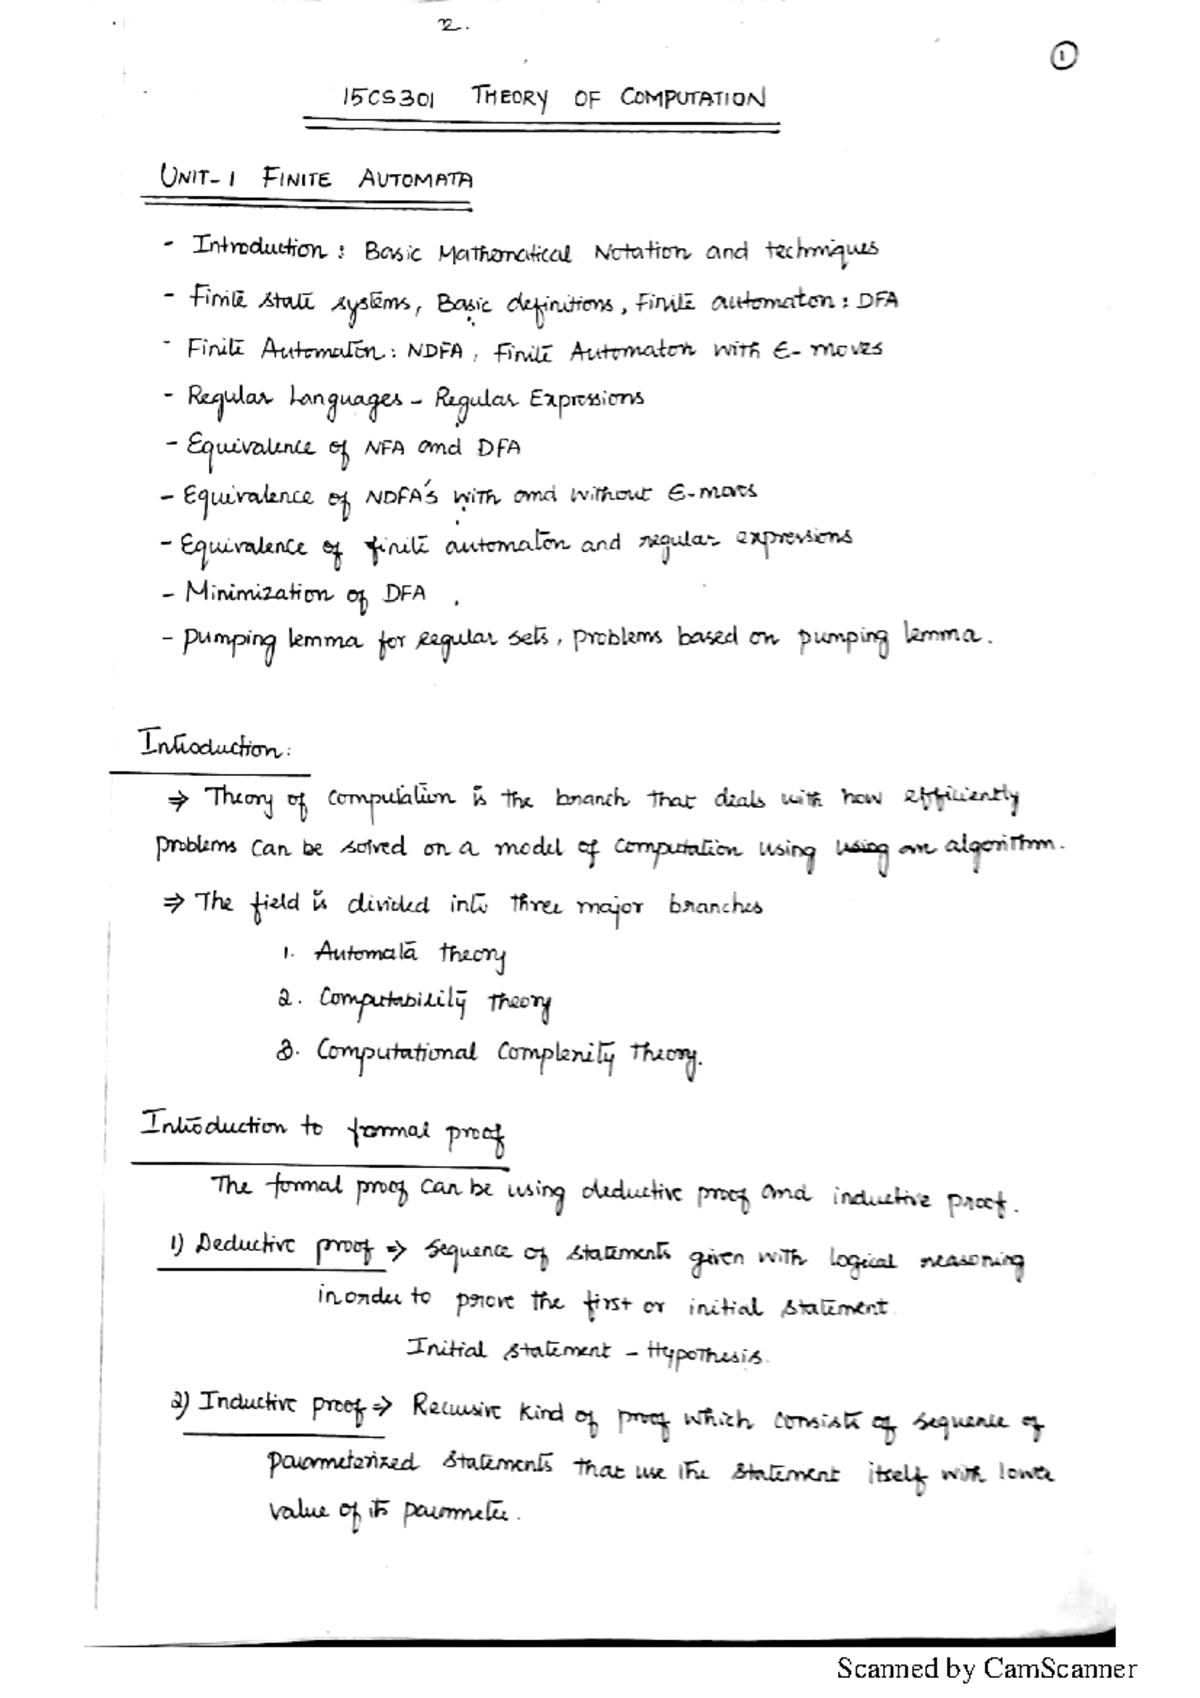 2.
1
15CS301 THEORY OF COMPUTATION
UNIT-1 FINITE AUTOMATA
- Introduction : Basic Mathematical Notation and techniques
- Finite state systems, Basic definitions, Finite automaton : DFA
- Finite Automaton : NDFA, Finite Automaton with ∈- moves
- Regular Languages - Regular Expressions
- Equivalence of NFA and DFA
- Equivalence of NDFA's with and without ∈-moves
- Equivalence of finite automaton and regular expressions
- Minimization of DFA .
- Pumping lemma for regular sets, problems based on pumping lemma.
Introduction:
⇒ Theory of computation is the branch that deals with how efficiently
problems can be solved on a model of computation using using an algorithm.
⇒ The field is divided into three major branches
1. Automata theory
2. Computability theory
3. Computational Complexity Theory.
Introduction to formal proof
The formal proof can be using deductive proof and inductive proof.
1) Deductive proof ⇒ sequence of statements given with logical reasoning
inorder to prove the first or initial statement.
Initial statement - Hypothesis.
2) Inductive proof ⇒ Recursive kind of proof which consists of sequence of
parameterized statements that use the statement itself with lower
value of its parameter.
Scanned by CamScanner